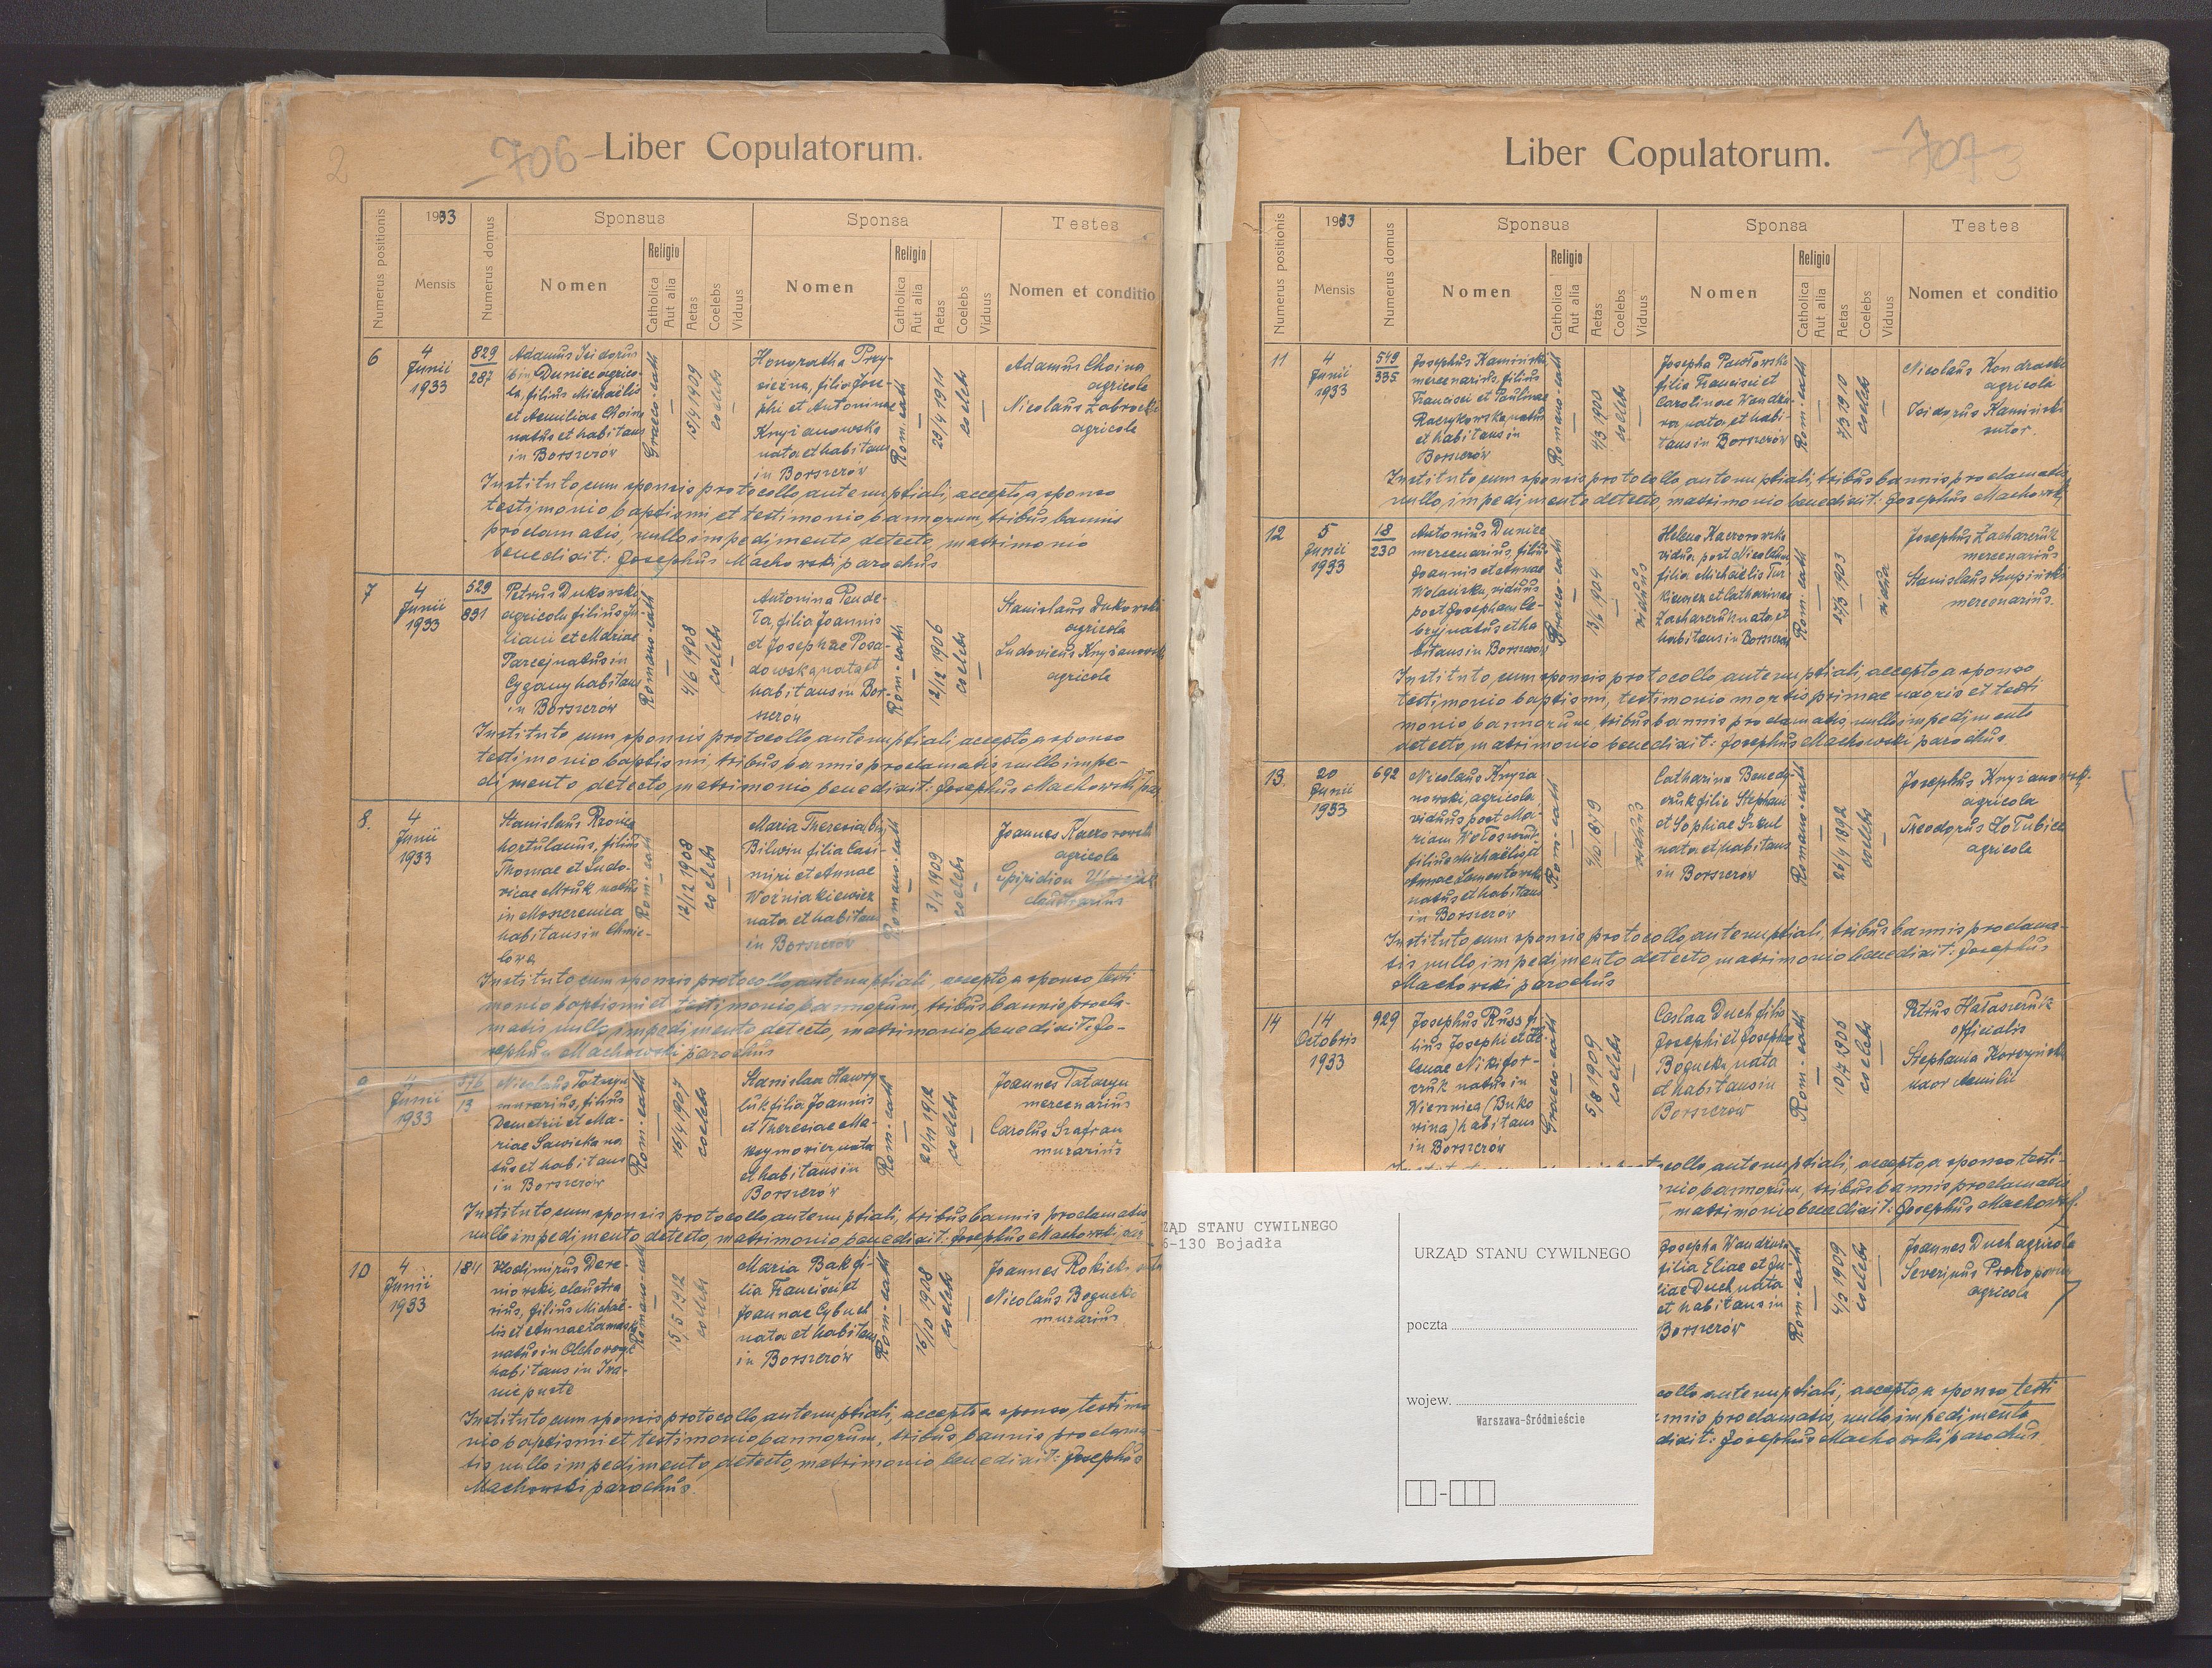 2
-706-
Liber Copulatorum.
Numerus positionis
1933
Mensis
Numerus domus
Sponsus
Nomen
Religio
Catholica
Aut alia
Aetas
Coelebs
Viduus
Sponsa
Nomen
Religio
Catholica
Aut alia
Aetas
Coelebs
Viduus
Testes
Nomen et conditio
6
4
Junii
1933
829
287
Adamus Isidorus
bin Duniec agrico-
la, filius Michaëlis
et Aemiliae Choina
natus et habitans
in Borszczów
Graeco-cath
15/4 1909
coelebs
Honoratha Przy-
siężna, filia Jose-
phi et Antoninae
Knyżanowska
nata et habitans
in Borszczów
Rom.cath
29/4 1911
coelebs
Adamus Choina
agricola
Nicolaus Zabrocki
agricola
Instituto cum sponsis protocollo antenuptiali, accepto a sponso
testimonio baptismi et testimonio bannorum, tribus bannis
proclamatis, nullo impedimento detecto, matrimonio
benedixit: Josephus Machowski parochus
7
4
Junii
1933
529
891
Petrus Dukowski
agricola filius Ju-
liani et Mariae
Parcej natus in
Cygany habitans
in Borszczów
Romano-cath
4/6 1908
coelebs
Antonina Pende-
ta, filia Joannis
et Josephae Posa-
dowska, nata et
habitans in Bor-
szczów
Rom-cath
12/12 1906
coelebs
Stanislaus Dukowski
agricola
Ludovicus Knyżanowski
agricola
Instituto cum sponsis protocollo antenuptiali accepto a sponso
testimonio baptismi, tribus bannis proclamatis nullo impe-
dimento detecto, matrimonio benedixit: Josephus Machowski par
8.
4
Junii
1933
Stanislaus
hortulanus, filius
Thomae et Ludo-
vicae Mruk natus
in Moszczenica
habitans in Chmie-
lowa
Rom.-cath
12/12 1908
coelebs
Maria Theresia bin
Bilwin filia Casi-
miri et Annae
Woźniakiewicz
nata et habitans
in Borszczów
Romano-cath
3/1 1909
coelebs
Joannes Kaczorowski
agricola
Spiridion
claustrarius
Instituto cum sponsis protocollo antenuptiali, accepto a sponso testi
monio baptismi et testimonio bannorum, tribus bannis procla-
matis nullo impedimento detecto, matrimonio benedixit: Jo-
sephus Machowski parochus
9
4
Junii
1933
576
13
Nicolaus Tataryn
murarius, filius
Demetrii et Ma-
riae Sawicka na
tus et habitans
in Borszczów
Rom.-cath
16/4 1907
coelebs
Stanislaa Hawry
luk filia Joannis
et Theresiae Ma-
ksymowicz, nata
et habitans in
Borszczów
Rom-cath
20/11 1912
coelebs
Joannes Tataryn
mercenarius
Carolus Szafran
murarius
Instituto cum sponsis protocollo antenuptiali, tribus bannis proclamatis
nullo impedimento detecto, matrimonio benedixit: Josephus Machowski, par
10
4
Junii
1933
184
Vlodimirus Dere-
niowski, claustra
rius, filius Michaë-
lis et Annae
natus in Olchowczyk
habitans in Iwa-
nie puste
Romano-cath
15/5 1912
coelebs
Maria Bak fi-
lia Francisci et
Joannae Cybuch
nata et habitans
in Borszczów
Rom-cath
16/10 1908
coelebs
Joannes Rokicki
Nicolaus Bogucki
murarius
Instituto cum sponsis protocollo antenuptiali, accepto a sponso testimo
nio baptismi et testimonio bannorum, tribus bannis proclama
tis nullo impedimento detecto, matrimonio benedixit: Josephus
Machowski parochus.
Liber Copulatorum.
-707
3
Numerus positionis
1933
Mensis
Numerus domus
Sponsus
Nomen
Religio
Catholica
Aut alia
Aetas
Coelebs
Viduus
Sponsa
Nomen
Religio
Catholica
Aut alia
Aetas
Coelebs
Viduus
Testes
Nomen et conditio
11
4
Junii
1933
549
335
Josephus Kamiński
mercenarius, filius
Francisci et Paulinae
Raczykowska, natus
et habitans in
Borszczów
Romano-cath
4/3 1900
coelebs
Josepha Pawłowska
filia Francisci et
Carolinae Wandzu-
ra, nata et habi-
tans in Borszczów
Rom.-cath
7/3 1910
coelebs
Nicolaus Kondracki
agricola
Isidorus Kamiński
sutor.
Instituto cum sponsis protocollo antenuptiali, tribus bannis proclamatis
nullo impedimento detecto, matrimonio benedixit: Josephus Machowski
12
5
Junii
1933
18
230
Antonius Duniec
mercenarius, filius
Joannis et Annae
Wolańska, viduus
post Josepham Ce-
bryj natus et ha
bitans in Borszczów
Graeco-cath
13/6 1904
viduus
Helena Kaczorowska
vidua post Nicolaum,
filia Michaëlis Tur
kiewicz et Catharinae
Zacharczuk nata et
habitans in Borszczów
Rom.-cath
27/3 1903
vidua
Josephus Zacharczuk
mercenarius
Stanislaus Krupiński
mercenarius.
Instituto cum sponsis protocollo antenuptiali, accepto a sponso
testimonio baptismi, testimonio mortis primae uxoris et testi
monio bannorum, tribus bannis proclamatis, nullo impedimento
detecto matrimonio benedixit: Josephus Machowski parochus.
13.
20
Junii
1933
692
Nicolaus Knyża
nowski, agricola
viduus post Ma-
riam Wołoszczuk
filius Michaëlis et
Annae Lamentowska
natus et habitans
in Borszczów
Rom-cath
4/10 1879
viduus
Catharina Benedy
czuk filia Stephani
et Sophiae Szkul
nata et habitans
in Borszczów
Romano-cath
26/4 1892
coelebs
Josephus Knyżanowski.
agricola
Theodorus Hołubiec
agricola
Instituto cum sponsis protocollo, antenuptiali, tribus bannis proclama-
tis nullo impedimento detecto, matrimonio benedixit: Josephus
Machowski parochus
14
14
Octobris
1933
929
Josephus Russ fi-
lius Josephi et He-
lenae Nikifor-
czuk natus in
Wiżnnica (Buko
wina) habitans
in Borszczów
Graeco-cath
5/8 1909
coelebs
Ceslaa Duch filia
Josephi et Josephae
Bogucka, nata
et habitans in
Borszczów
Rom.-cath
10/7 1906
coelebs
Petrus Hałaszczuk
officialis
Stephania Korczyńska
uxor Aemilii
protocollo antenuptiali, accepto a sponso testi-
monio bannorum, tribus bannis proclamatis
matrimonio benedixit: Josephus Machowski.
Josepha Wandzura
filia Eliae et Ju-
liae Duch, nata
et habitans in
Borszczów
Rom-cath
4/2 1909
coelebs
Joannes Duch agricola
Severinus Prokopowicz
agricola
collo antenuptiali, accepto a sponso testi
annis proclamatis, nullo impedimento
dixit: Josephus Machowski parochus.
ZĄD STANU CYWILNEGO
6-130 Bojadła
URZĄD STANU CYWILNEGO
poczta
wojew.
Warszawa-Śródmieście